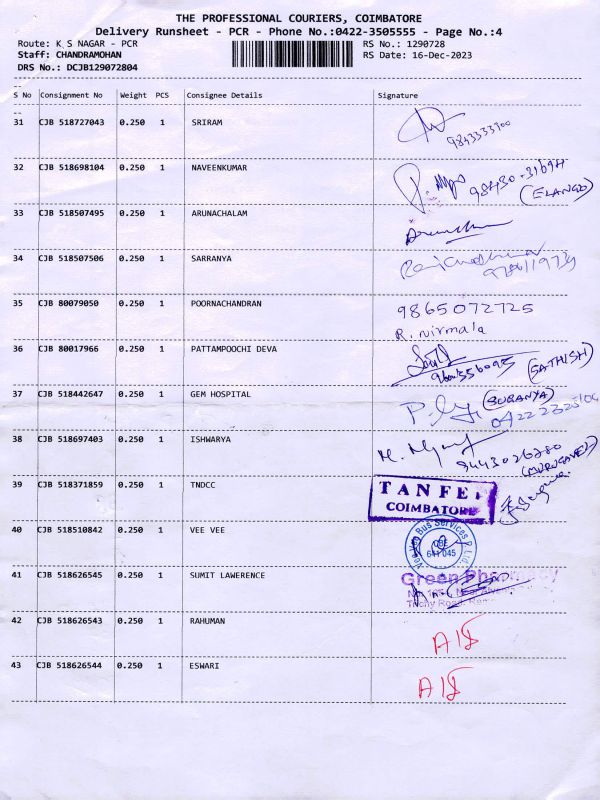 THE PROFESSIONAL COURIERS, COIMBATORE
Delivery Runsheet - PCR - Phone No.:0422-3505555 - Page No.:4
Route: K S NAGAR - PCR
RS No.: 1290728
Staff: CHANDRAMOHAN
RS Date: 16-Dec-2023
DRS No.: DCJB129072804
--
S No Consignment No Weight PCS Consignee Details Signature
--
31 CJB 518727043 0.250 1 SRIRAM
9843333300
32 CJB 518698104 0.250 1 NAVEENKUMAR
98430-31694
(ELANGO)
33 CJB 518507495 0.250 1 ARUNACHALAM
34 CJB 518507506 0.250 1 SARRANYA
35 CJB 80079050 0.250 1 POORNACHANDRAN
9865072725
R. nirmala
36 CJB 80017966 0.250 1 PATTAMPOOCHI DEVA
(SATHISH)
37 CJB 518442647 0.250 1 GEM HOSPITAL
(SUGANYA)
38 CJB 518697403 0.250 1 ISHWARYA
9443026280
(MURUGAVEL)
39 CJB 518371859 0.250 1 TNDCC
TANFED
COIMBATORE
40 CJB 518510842 0.250 1 VEE VEE
Vee Vee Bus Services P Ltd.
CBE
641 045
41 CJB 518626545 0.250 1 SUMIT LAWERENCE
Green Pharmacy
Trichy Road,
42 CJB 518626543 0.250 1 RAHUMAN
43 CJB 518626544 0.250 1 ESWARI